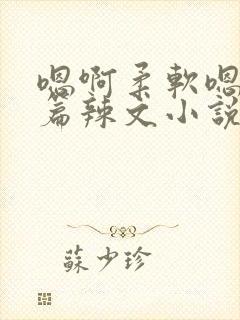 嗯啊柔軟嗯
篇辣文小說
蘇少珍